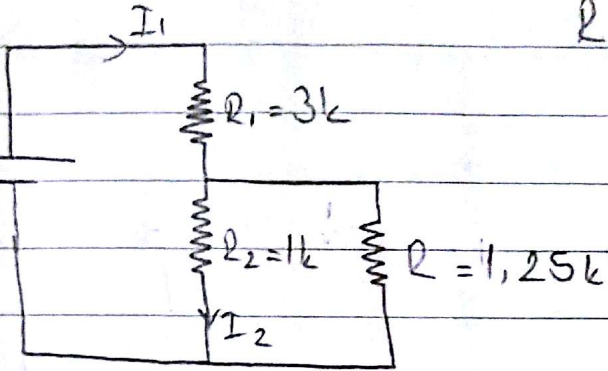 I₁
R
R₁ = 3k
R₂ = 1k
R = 1,25k
I₂